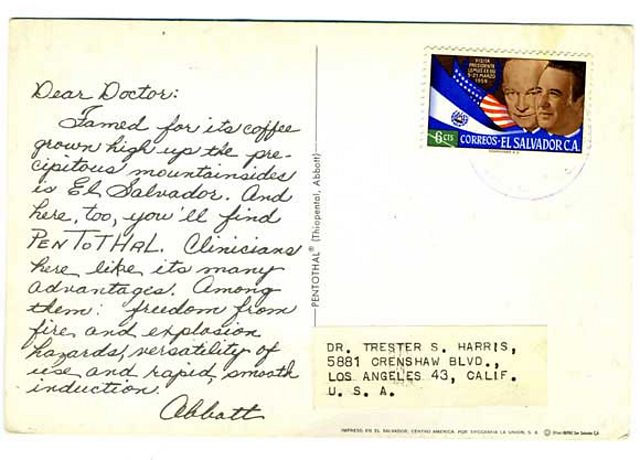 Dear Doctor:
Famed for its coffee
grown high up the pre-
cipitous mountainsides
is El Salvador. And
here, too, you'll find
PENTOTHAL. Clinicians
here like its many
advantages. Among
them: freedom from
fire and explosion
hazards, versatility of
use and rapid, smooth
induction.
Abbott
PENTOTHAL® (Thiopental, Abbott)
VISITA
PRESIDENTE
LEMUS EE.UU.
9-21 MARZO
1959
6 CTS
CORREOS-EL SALVADOR C.A.
DR. TRESTER S. HARRIS,
5881 CRENSHAW BLVD.,
LOS ANGELES 43, CALIF.
U. S. A.
IMPRESO EN EL SALVADOR, CENTRO AMERICA, POR TIPOGRAFIA LA UNION, S. A.